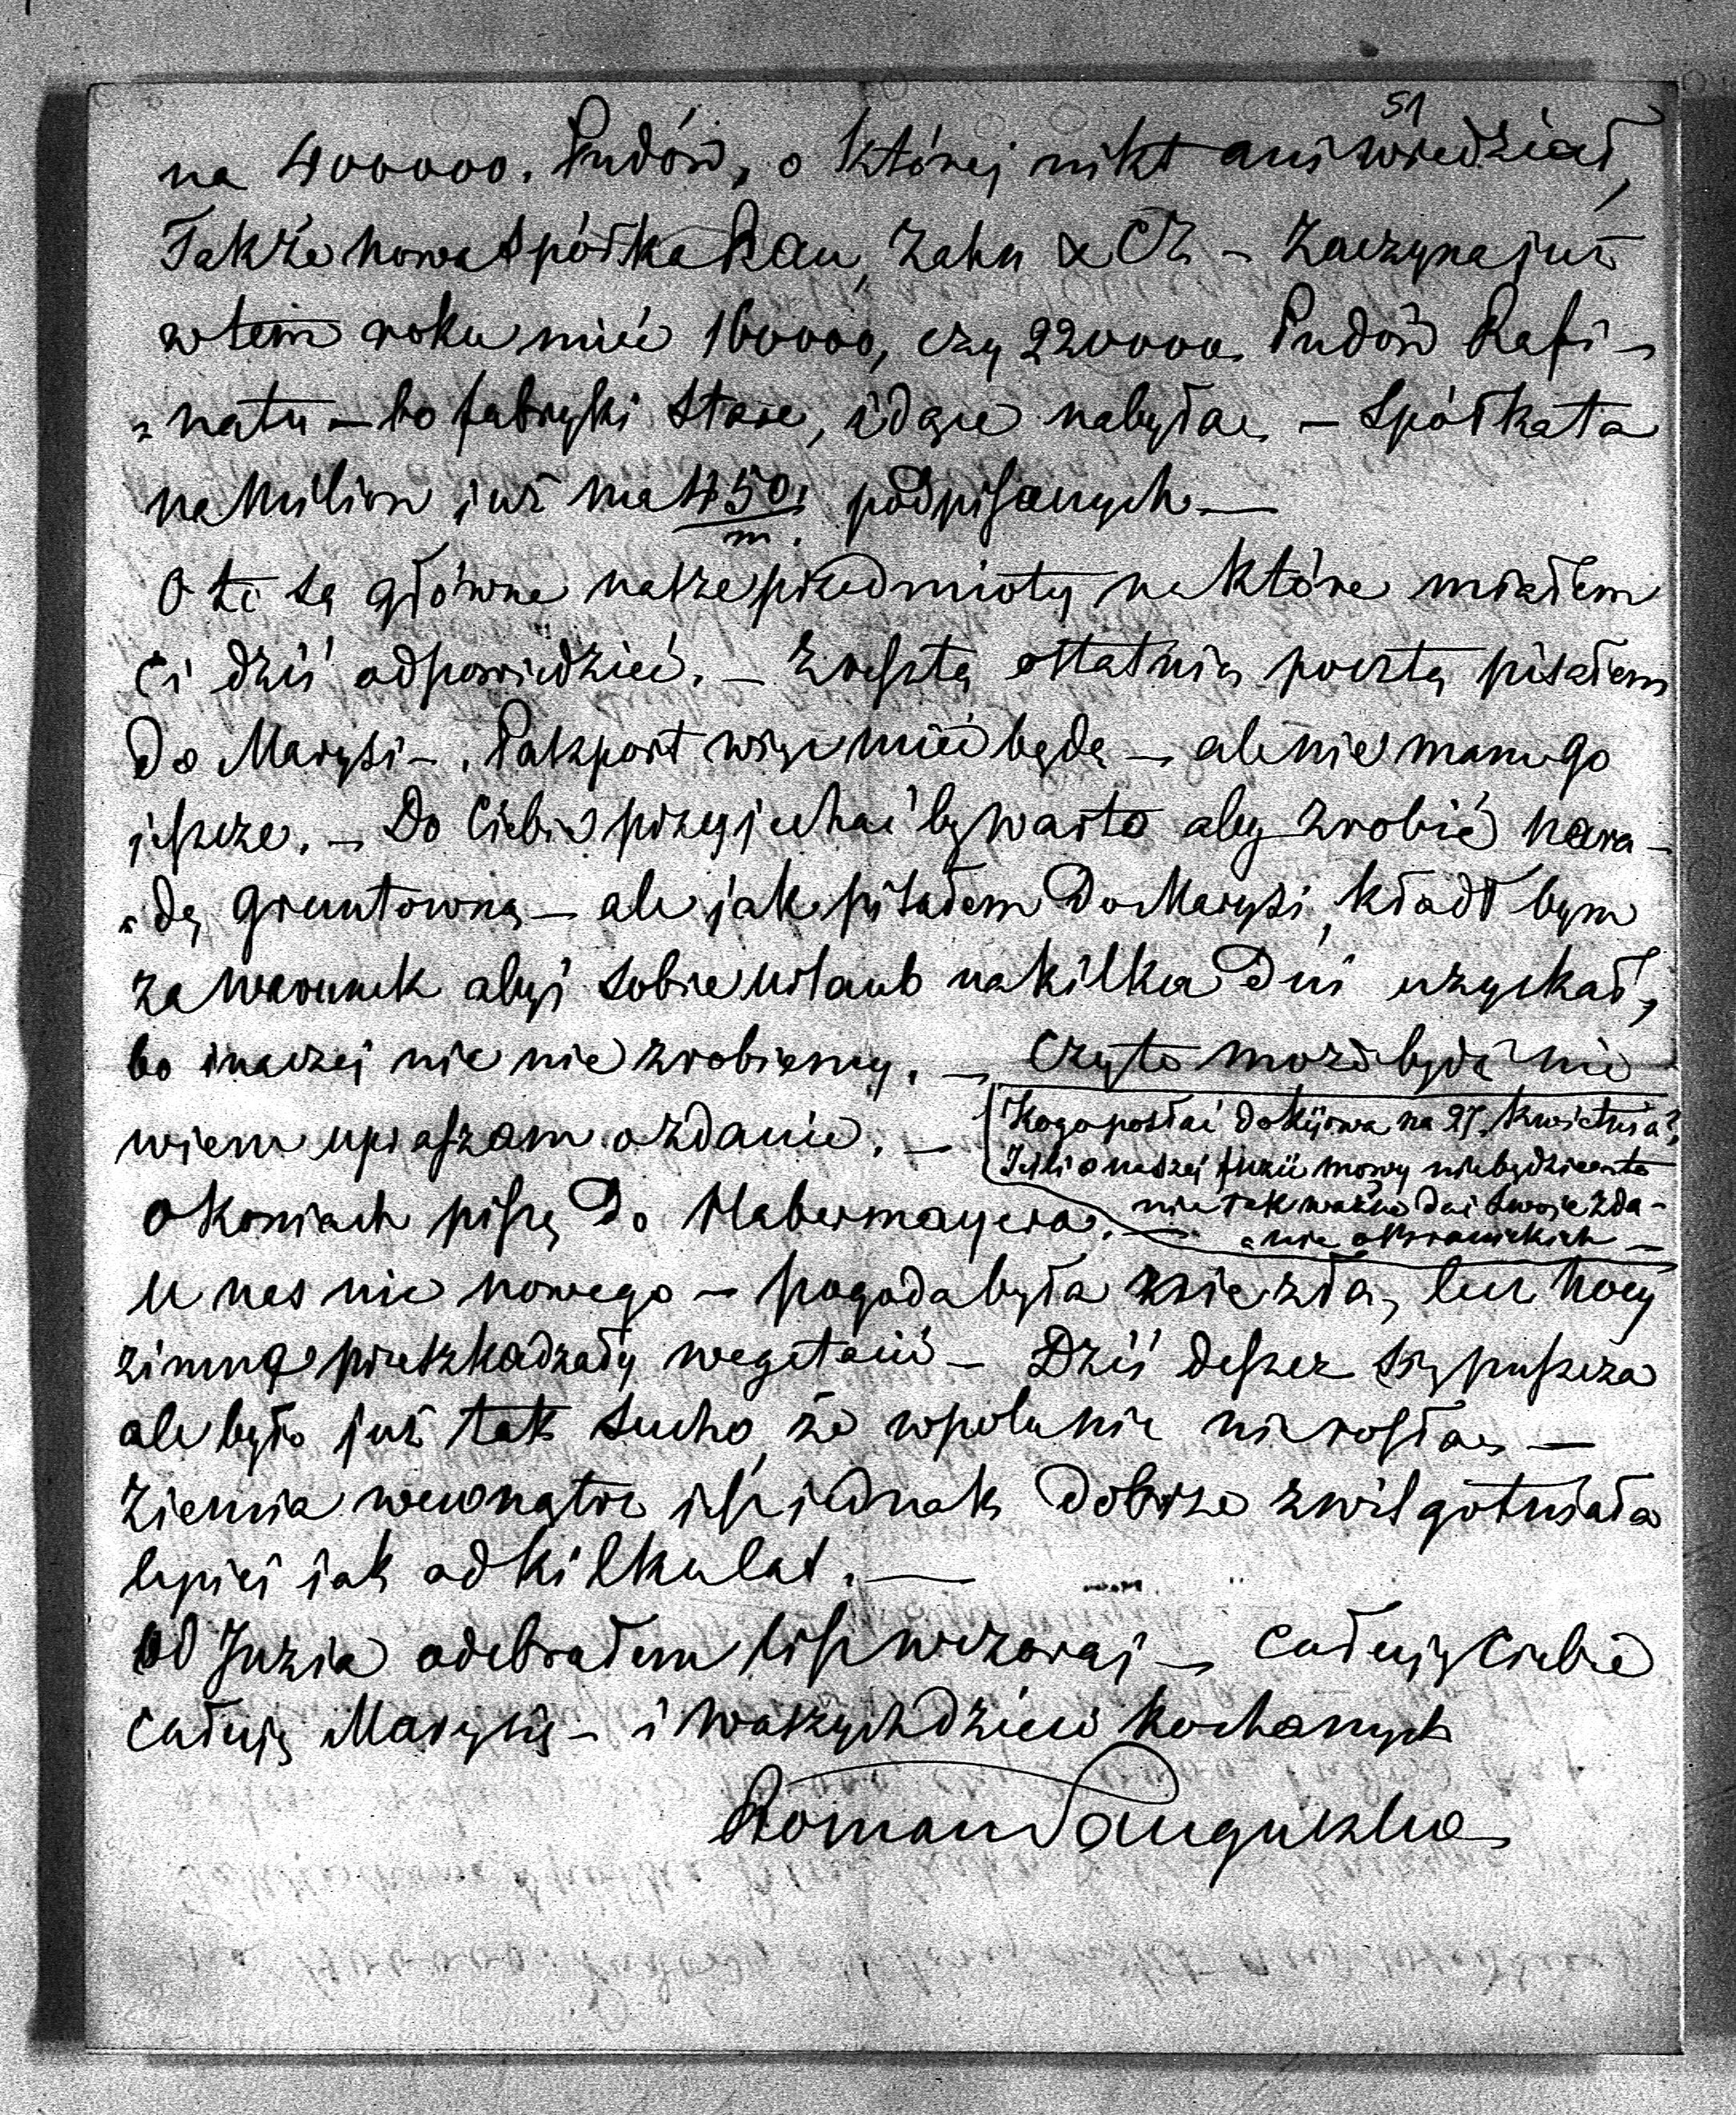 51
na 400000. Pudów, o której nikt ani wiedział,
Także nowa Spółka Rau, Zahn & C̲z̲ – Zaczyna już
w tem roku mieć 160000, czy 220000. Pudów Rafi-
„natu – bo fabryki stare, idące nabyła. – Spółka ta
na Milion już ma 450. podpisanych. —
m.
O to są główne nasze przedmioty na które miałem
Ci dziś odpowiedzieć. – Zresztą ostatnią pocztą pisałem
do Marysi –. Paszport więc mieć będę – ale nie mam go
jeszcze. – Do Ciebie przyjechać by warto aby zrobić nara-
„dę gruntowną – ale jak pisałem do Marysi, kładł bym
za warunek abyś sobie Urlaub na kilka dni uzyskał,
bo inaczej nic nie zrobiemy. – Czy to może być nie
wiem upraszam o zdanie. –
Kogo posłać do Kijowa na 27. Kwietnia?
Jeśli o naszej fuzii mowy niebędzie to
nie tak ważne daj swoje zda-
„nie o Branickich –
O Koniach piszę do Habermayera. –
U nas nic nowego – pogoda była nie zła, lecz nocy
zimne przeszkadzały wegetacii – Dziś deszcz się puszcza
ale było już tak sucho, że w polu nic nie rosła. –
Ziemia wewnątrz jest jednak dobrze zwilgotniała
lepiej jak od kilku lat. —
Od Juzia odebrałem list wczoraj – całuję Ciebie
całuję Marysię – i waszych dzieci kochanych
Roman Sanguszko